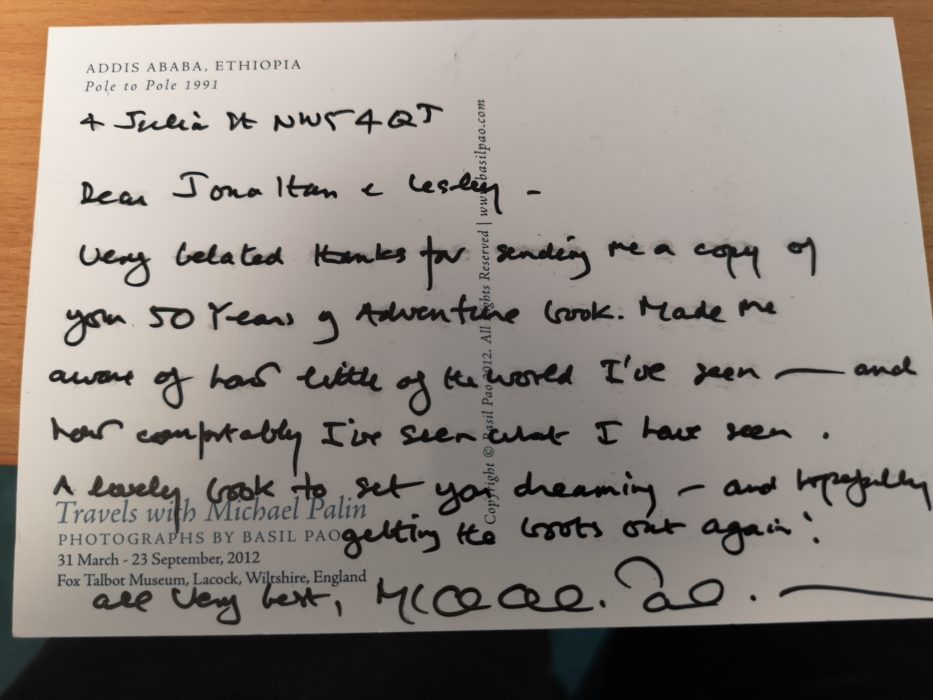 ADDIS ABABA, ETHIOPIA
Pole to Pole 1991
4 Julia St NW5 4QJ
Dear Jonathan & Lesley –
Very belated thanks for sending me a copy of
your 50 Years of Adventure book. Made me
aware of how little of the world I've seen — and
how comfortably I've seen what I have seen.
A lovely book to set you dreaming – and hopefully
getting the boots out again!
all very best, Michael Palin.
Travels with Michael Palin
PHOTOGRAPHS BY BASIL PAO
31 March - 23 September, 2012
Fox Talbot Museum, Lacock, Wiltshire, England
Copyright © Basil Pao 2012. All Rights Reserved | www.basilpao.com